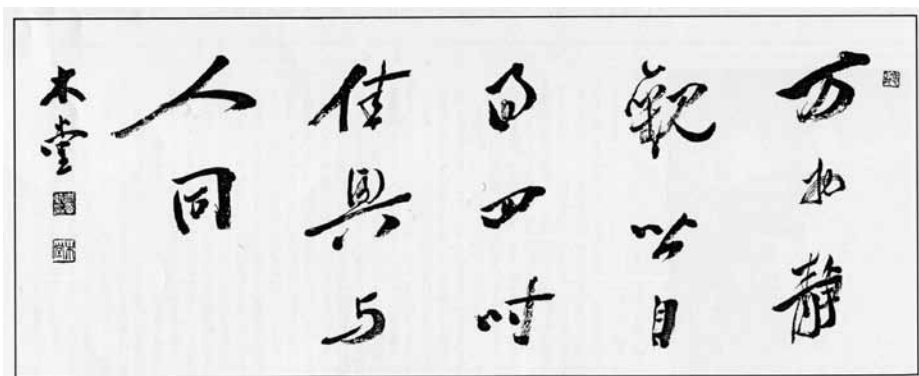 万物静
観皆自
得四時
佳興与
人同
木堂